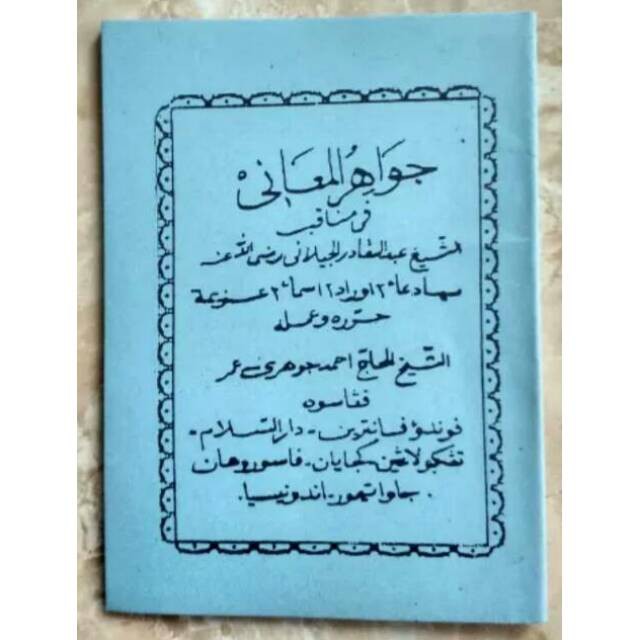 جَوَاهِرُ المَعَانِى
فى مناقب
الشّيخ عبد القادر الجيلانى رضى الله عنه
دعاء٢ اوراد٢ اسماء٢ عزيمة
حرّره وعمله
الشّيخ الحاج احمد جوهرى عمر
فوندؤ فسانترين - دار السّلام -
كجايان - فاسوروهان
جاوا تيمور - اندونيسيا.